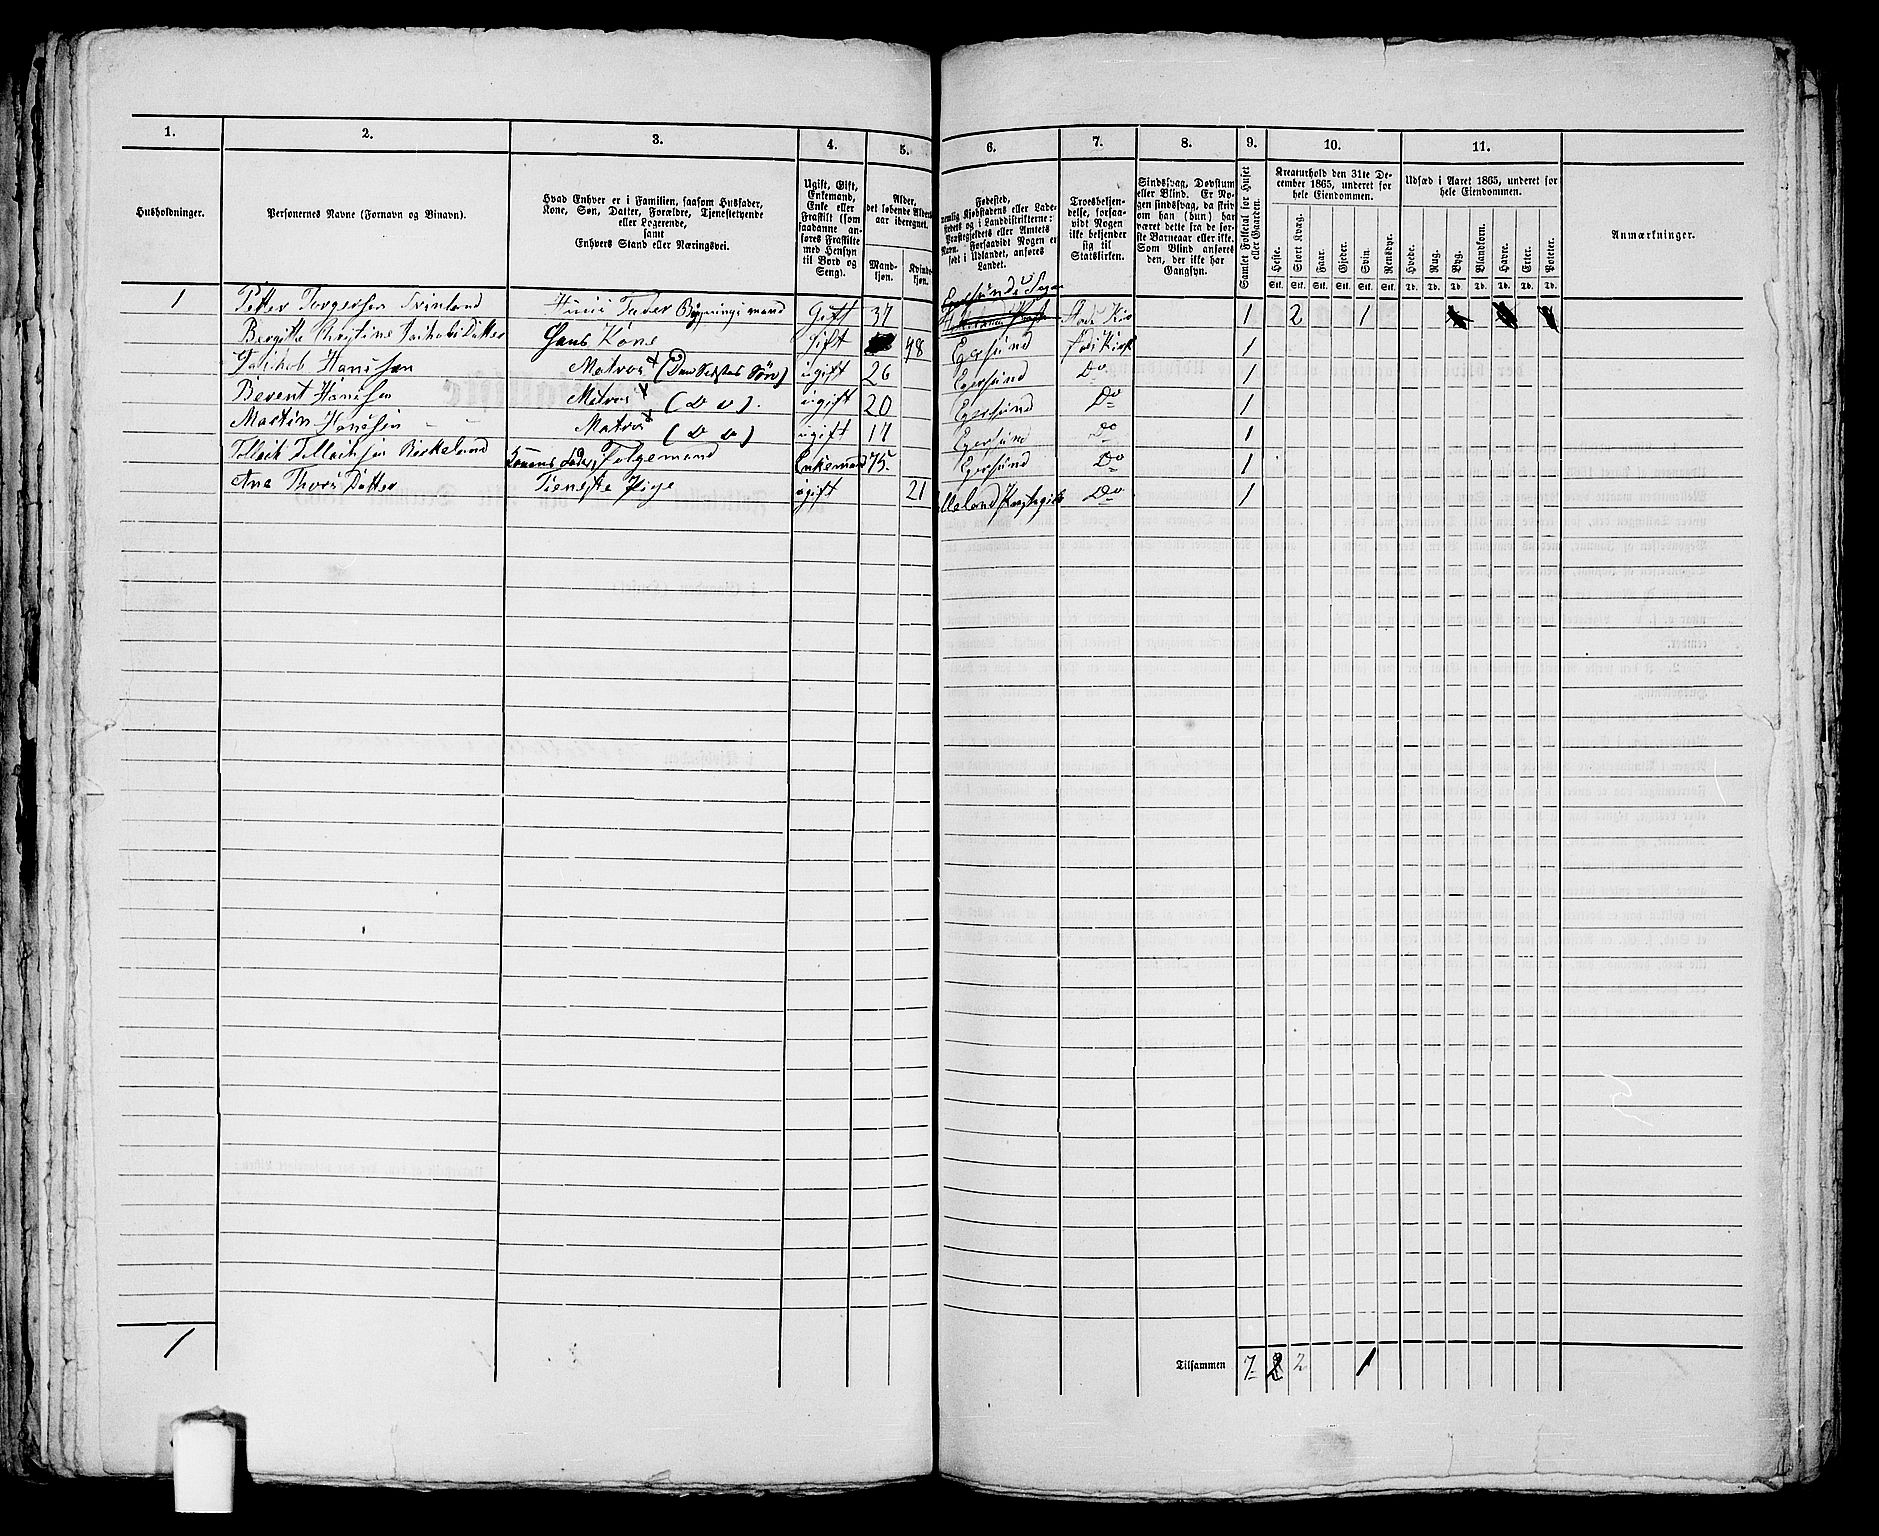 1. 2. 3. 4. 5. 6. 7. 8. 9. 10. 11.
Husholdninger.
Personernes Navne (Fornavn og Binavn).
Hvad Enhver er i Familien, saasom Husfader,
Kone, Søn, Datter, Forældre, Tjenestetyende
eller Logerende,
samt
Enhvers Stand eller Næringsvei.
Ugift, Gift,
Enkemand,
Enke eller
Fraskilt (som
saadanne an-
føres Fraskilte
med Hensyn
til Bord og
Seng).
Alder,
det løbende Alders-
aar iberegnet.
Mand-
kjøn.
Kvinde-
kjøn.
Fødested,
nemlig Kjøbstadens eller Lade-
stedets og i Landdistrikterne:
Præstegjeldets eller Amtets
Navn. Forsaavidt Nogen er
født i Udlandet, anføres
Landet.
Troesbekjen-
delse, forsaa-
vidt Nogen
ikke bekjender
sig til
Statskirken.
Sindssvag, Døvstum
eller Blind. Er No-
gen sindssvag, da skriv
om han (hun) har
været dette fra de før-
ste Barneaar eller ikke.
Som Blind anføres
den, der ikke har
Gangsyn.
Samlet Folketal for Huset
eller Gaarden.
Kreaturhold den 31te De-
cember 1865, underet for
hele Eiendommen.
Heste. Stort Kvæg. Faar. Gjeder. Svin. Rensdyr.
Stk. Stk. Stk. Stk. Stk. Stk.
Udsæd i Aaret 1865, underet for
hele Eiendommen.
Hvede. Rug. Byg. Blandkorn. Havre. Erter. Poteter.
Td. Td. Td. Td. Td. Td. Td.
Anmærkninger.
1 Petter Torgersen Huus Fader Bygningsmand Gift 37 Egersunds Sogn 1 2 1
Bergitte Kone Gift 48 Egersund 1
Jakob Hansen Matros (Søn) ugift 26 Egersund Do 1
Berent Hansen Matros (D D). ugift 20 Egersund Do 1
Martin Hansen Matros (D D) ugift 17 Egersund Do 1
Tollack Tollacksen Birkeland Konens Fader, Enkemand 75. Egersund Do 1
Ane Thors Datter Tieneste Pige ugift 21 Do 1
1
Tilsammen 7 2 1